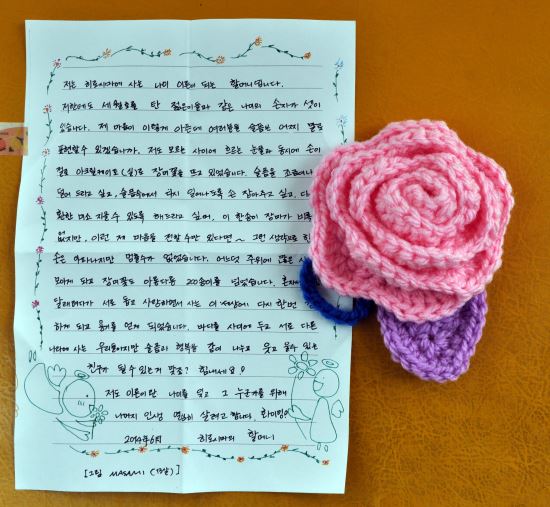 저는 히로시마에 사는 나이 이른이 되는 할머니입니다.
저한테도 세월호를 탄 젊은이들과 같은 나이의 손자가 셋이
있습니다. 제 마음이 이렇게 아픈데 여러분들 슬픔은 어찌 말로
표현할수 있겠습니까. 저도 모르는 사이에 흐르는 눈물과 동시에 손이
절로 아크릴케이토(실)로 장미꽃을 뜨고 있었습니다. 슬픔을 조금이나
덜어 드리고 싶고, 슬픔속에서 다시 일어나도록 손 잡아주고 싶고, 다
환한 미소 지을 수 있도록 해드리고 싶어, 이 한송이 장미가 비록
없지만, 이런 제 마음을 전할 수만 있다면~ 그런 생각으로
손은 아파나지만 멈출수가 없었습니다. 어느덧 주위에 많은
모이게 되고 장미꽃도 아롱다롱 200송이를 넘었습니다. 혼자
달래려다가 서로 돕고 사랑하면서 사는 이 세상에 다시 한번
하게 되고 용기를 얻게 되었습니다. 바다를 사이에 두고 서로 다른
나라에 사는 우리들이지만 슬픔과 행복을 같이 나누고 웃고 울수 있는
친구가 될수 있는거 맞죠? 힘내세요!
저도 이른이란 나이를 잊고 그 누군가를 위해
나머지 인생 열심히 살려고 합니다 화이팅!
2014年6月 히로시마의 할머니
[그림 MASAMI (13살)]